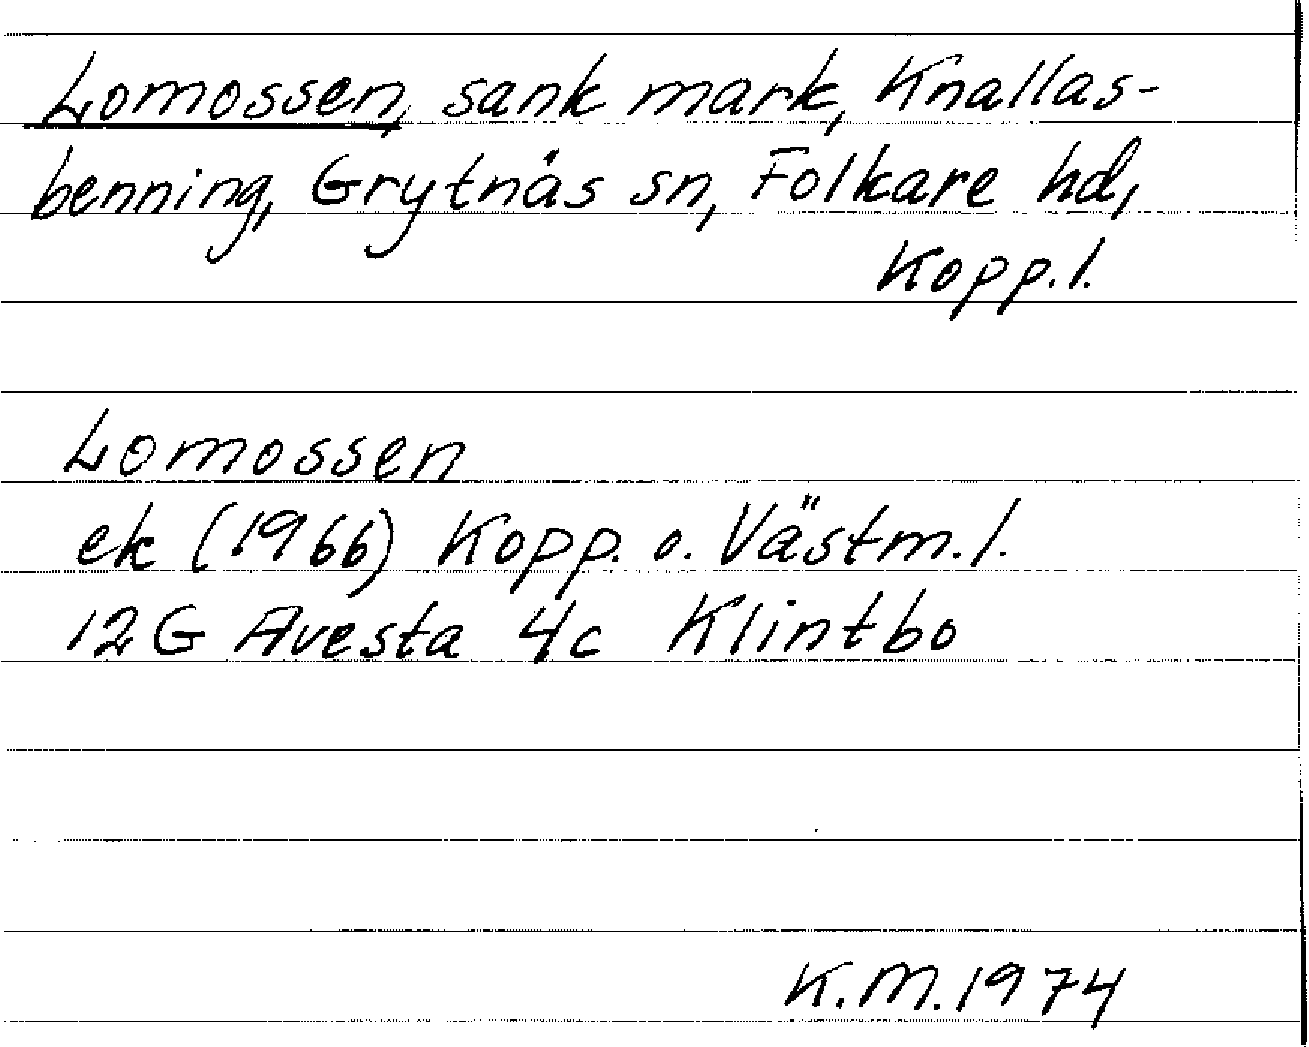 Lomossen, sank mark, Knallas-
benning, Grytnäs sn, Folkare hd,
Kopp.l.
Lomossen
ek (1966) Kopp. o. Västm.l.
12G Avesta 4c Klintbo
K.M.1974